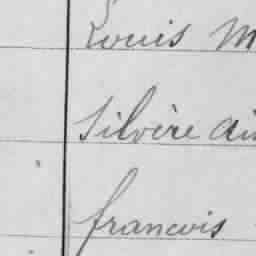 Louis M
Silvère Ai
francois